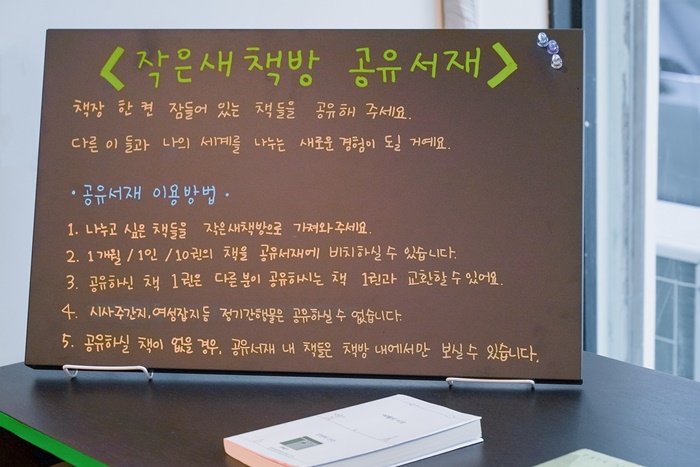 <작은새책방 공유서재>
책장 한 켠 잠들어 있는 책들을 공유해 주세요.
다른 이 들과 나의 세계를 나누는 새로운 경험이 되실 거예요.
· 공유서재 이용방법 ·
1. 나누고 싶은 책들을 작은새책방으로 가져와주세요.
2. 1개월 / 1인 / 10권의 책을 공유서재에 비치하실 수 있습니다.
3. 공유하신 책 1권은 다른분이 공유하시는 책 1권과 교환할 수 있어요.
4. 시사주간지, 여성잡지 등 정기간행물은 공유하실 수 없습니다.
5. 공유하실 책이 없을 경우, 공유서재 내 책들은 책방 내에서만 보실 수 있습니다.